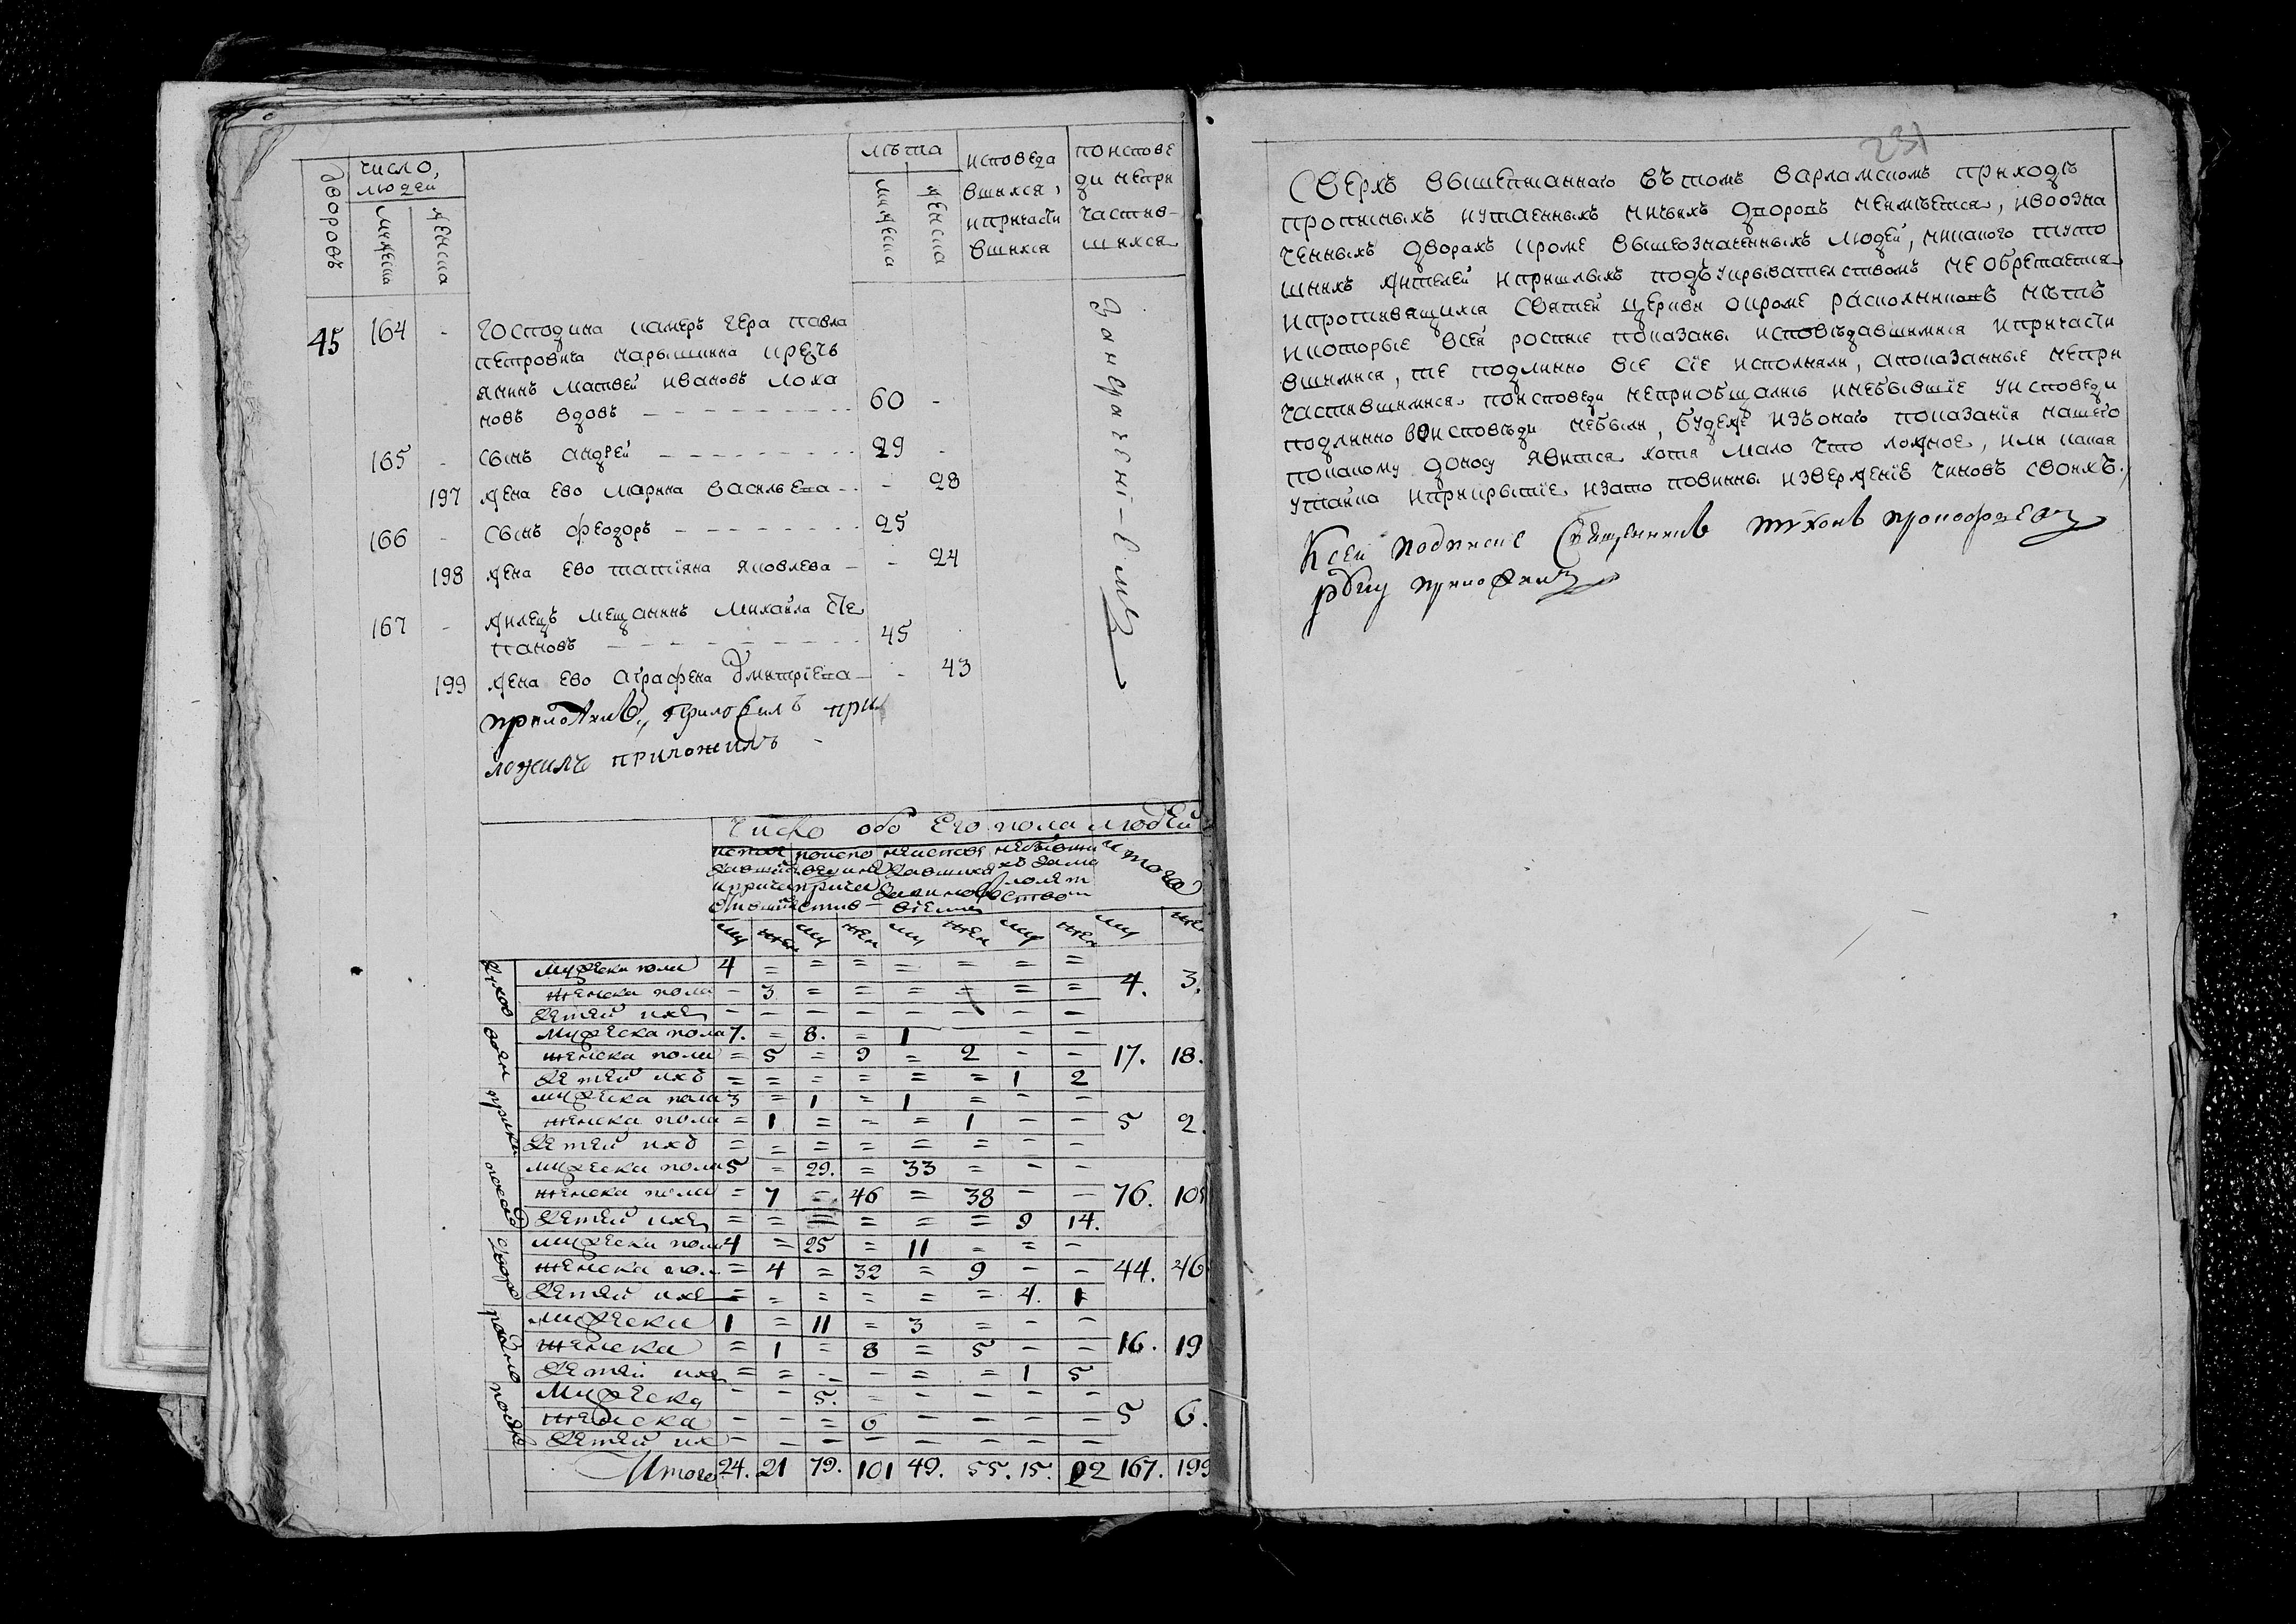 дворовъ
число,
людей
мужеска
женска
лѣта
мужеска
женска
исповеда
вшихся,
и причасти
вшихся
по испове
ди непри
частив-
шихся
45 164 - господина камеръ гера павла
петровича нарышкина кресть
янинъ матвей ивановъ лоха
новъ вдовъ - 60 -
165 - сынъ андрей - 29 -
197 жена ево марина васильева - 28
166 - сынъ феодоръ - 25
198 жена ево татіяна яковлева - 24
167 - жилецъ мещанинъ михайла сте
пановъ - 45
199 жена ево аграфена дмитріева - 43
приложилъ при
ложилъ приложилъ -
число обоего пола людей
итого
му жен му жен му жен му жен му жен
мужеска пола 4 = = = = = = = 4. 3.
женска пола - 3 = = = = = =
детей ихъ - - - - - - - -
мужеска пола 7. = 8. = 1 - - 17. 18.
женска пола = 5 = 9 = 2 - -
детей ихъ = = = = = = 1 2
мужеска пола 3 = 1 = 1 = - - 5 2.
женска пола = 1 = - = 1 - -
детей ихъ = = = = = = - -
мужеска пола 5 = 29. = 33 = - - 76. 105
женска пола = 7 = 46 = 38 - -
детей ихъ = = = = = = 9 14.
дворо
мужеска пола 4 = 25 = 11 = = - 44. 46
женска по. = 4 = 32 = 9 - -
детей ихъ = = = = = = 4. 1
мужеска 1 = 11 = 3 = - - 16. 19
женска = 1 = 8 = 5 - -
детей ихъ = = - - = = 1 5
мужеска - - 5. = - - - - 5 6.
женска - - = 6 - - - -
детей их - - - - - - - -
Итого 24. 21 79. 101 49. 55. 15. 22 167. 199
231
Сверхъ вышеписаннаго въ томъ варламскомъ приходѣ
прописныхъ и утаенныхъ ничьихъ дворовъ неимѣется, и в оозна
ченныхъ дворахъ кроме вышеозначенныхъ людей, никакого тут о
щихъ жителей и пришлыхъ подъ укрывателствомъ не обретается
и противящихся святей церкви и кроме расколниковъ нѣтъ
и которые в сей росписе показаны исповѣдавшимися и причасти
вшимися, те подлинно все сіе исполняли, а показанные непри
частившимися по исповеди не приобщались и небывшіе у исповеди
подлинно во исповѣди небыли, будеже изъ онаго показанія нашего
по какому доносу явится хотя мало что ложное, или какая
утайка и прикрытіе, и за то повинны изверженіе чиновъ своихъ.
К сей подписке священникъ тихонъ прокофьевъ
руку приложилъ